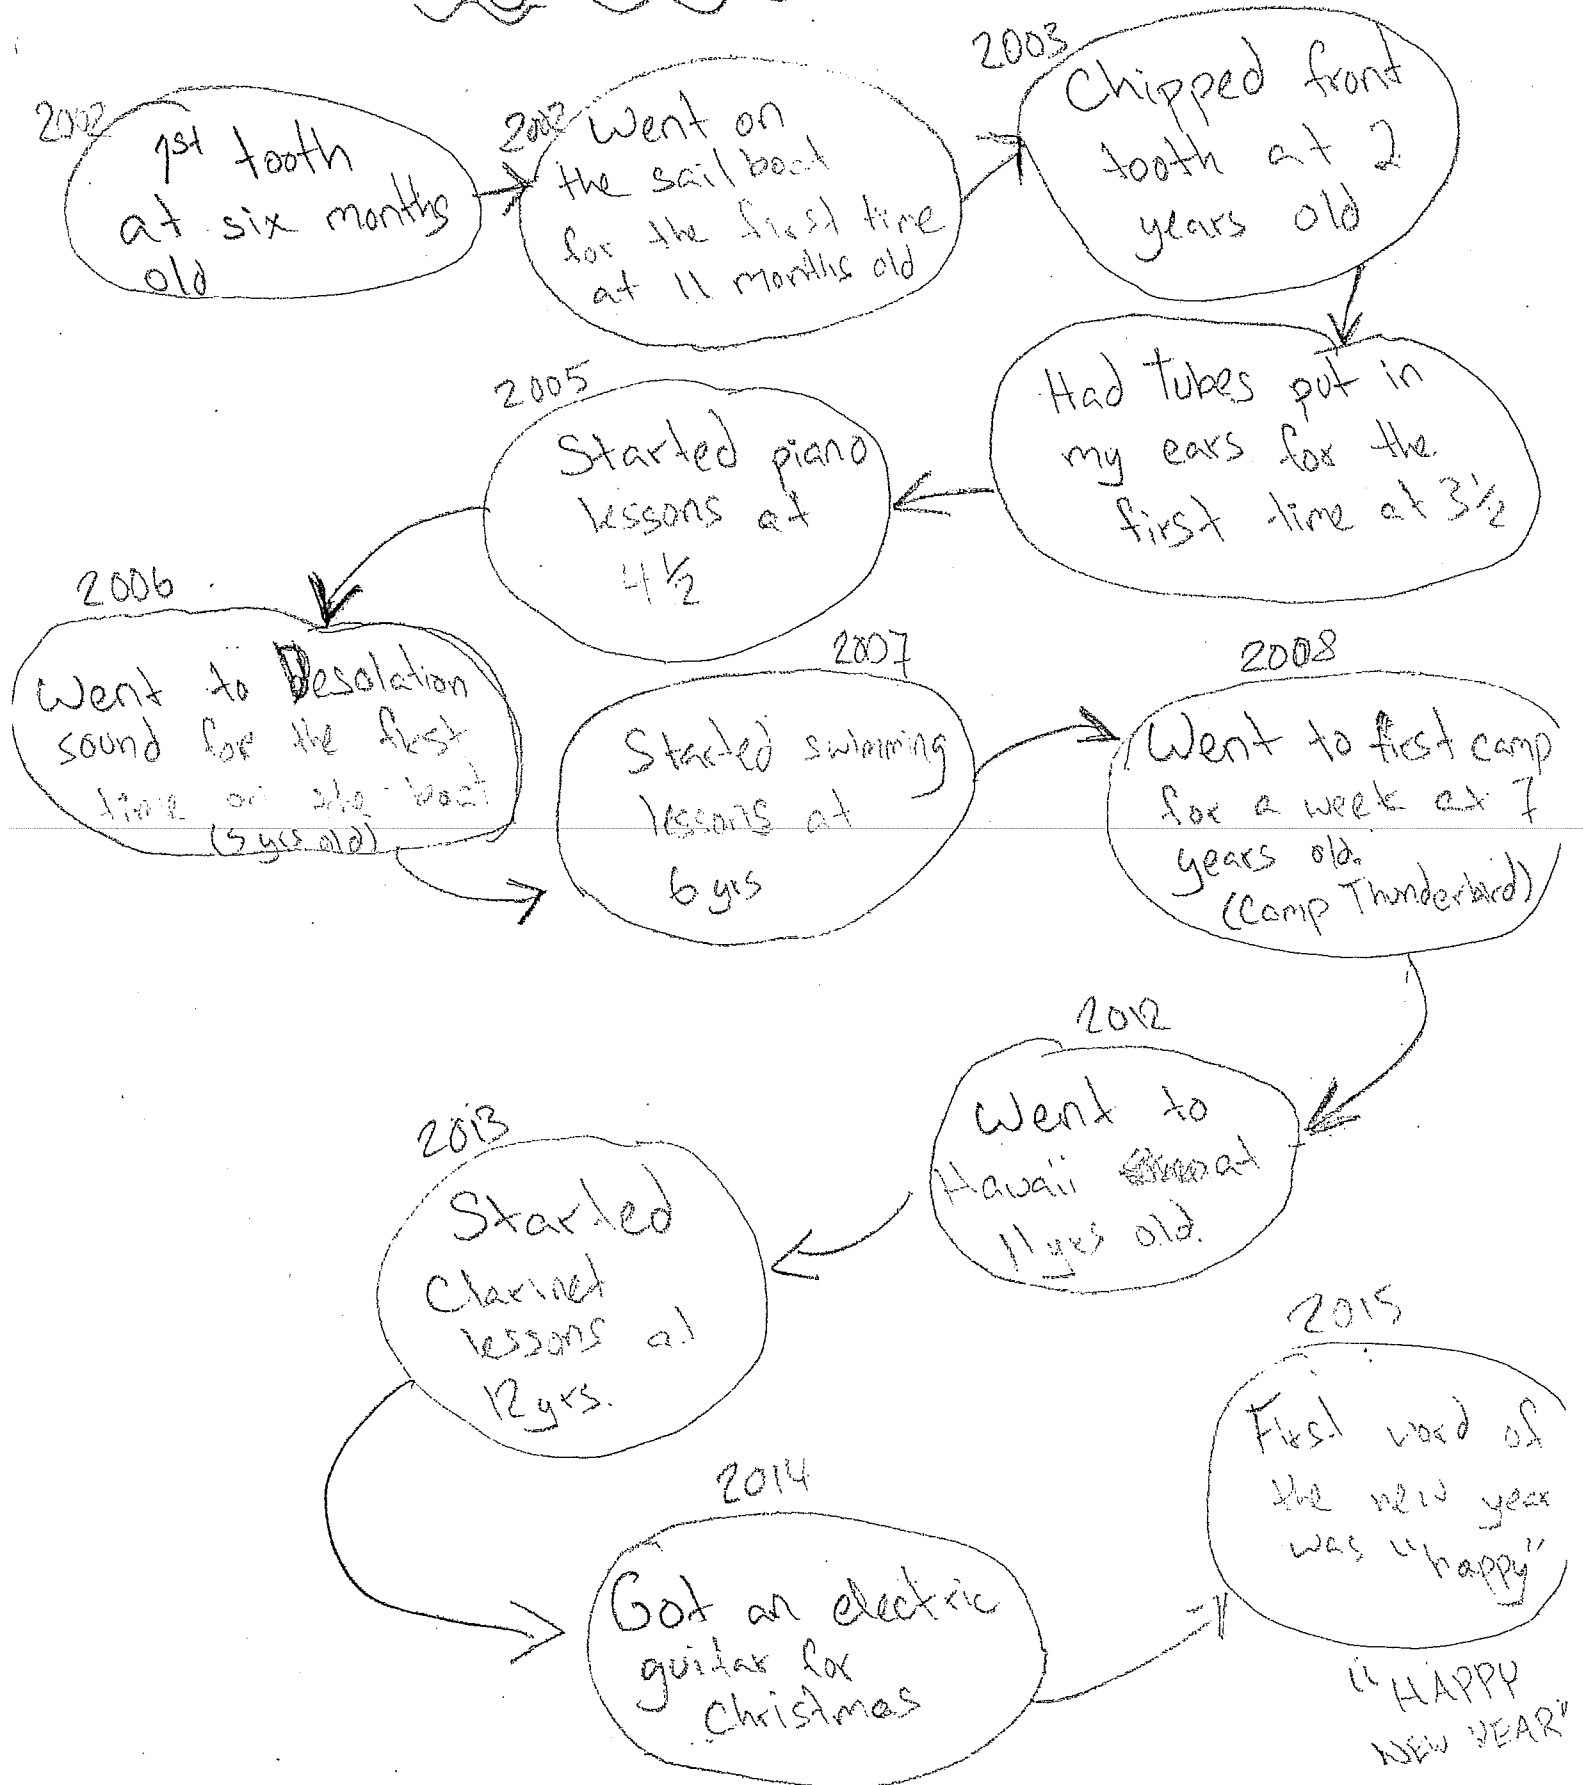 2002
1st tooth
at six months
old
2002
Went on
the sailboat
for the first time
at 11 months old
2003
Chipped front
tooth at 2
years old
Had tubes put in
my ears for the
first time at 3 1/2
2005
Started piano
lessons at
4 1/2
2006
Went to Desolation
sound for the first
time on the boat
(5 yrs old)
2007
Started swimming
lessons at
6 yrs
2008
Went to first camp
for a week at 7
years old.
(Camp Thunderbird)
2012
Went to
Hawaii at
11 yrs old.
2013
Started
Clarinet
lessons at
12 yrs.
2014
Got an electric
guitar for
Christmas
2015
First word of
the new year
was "happy"
"HAPPY
NEW YEAR"